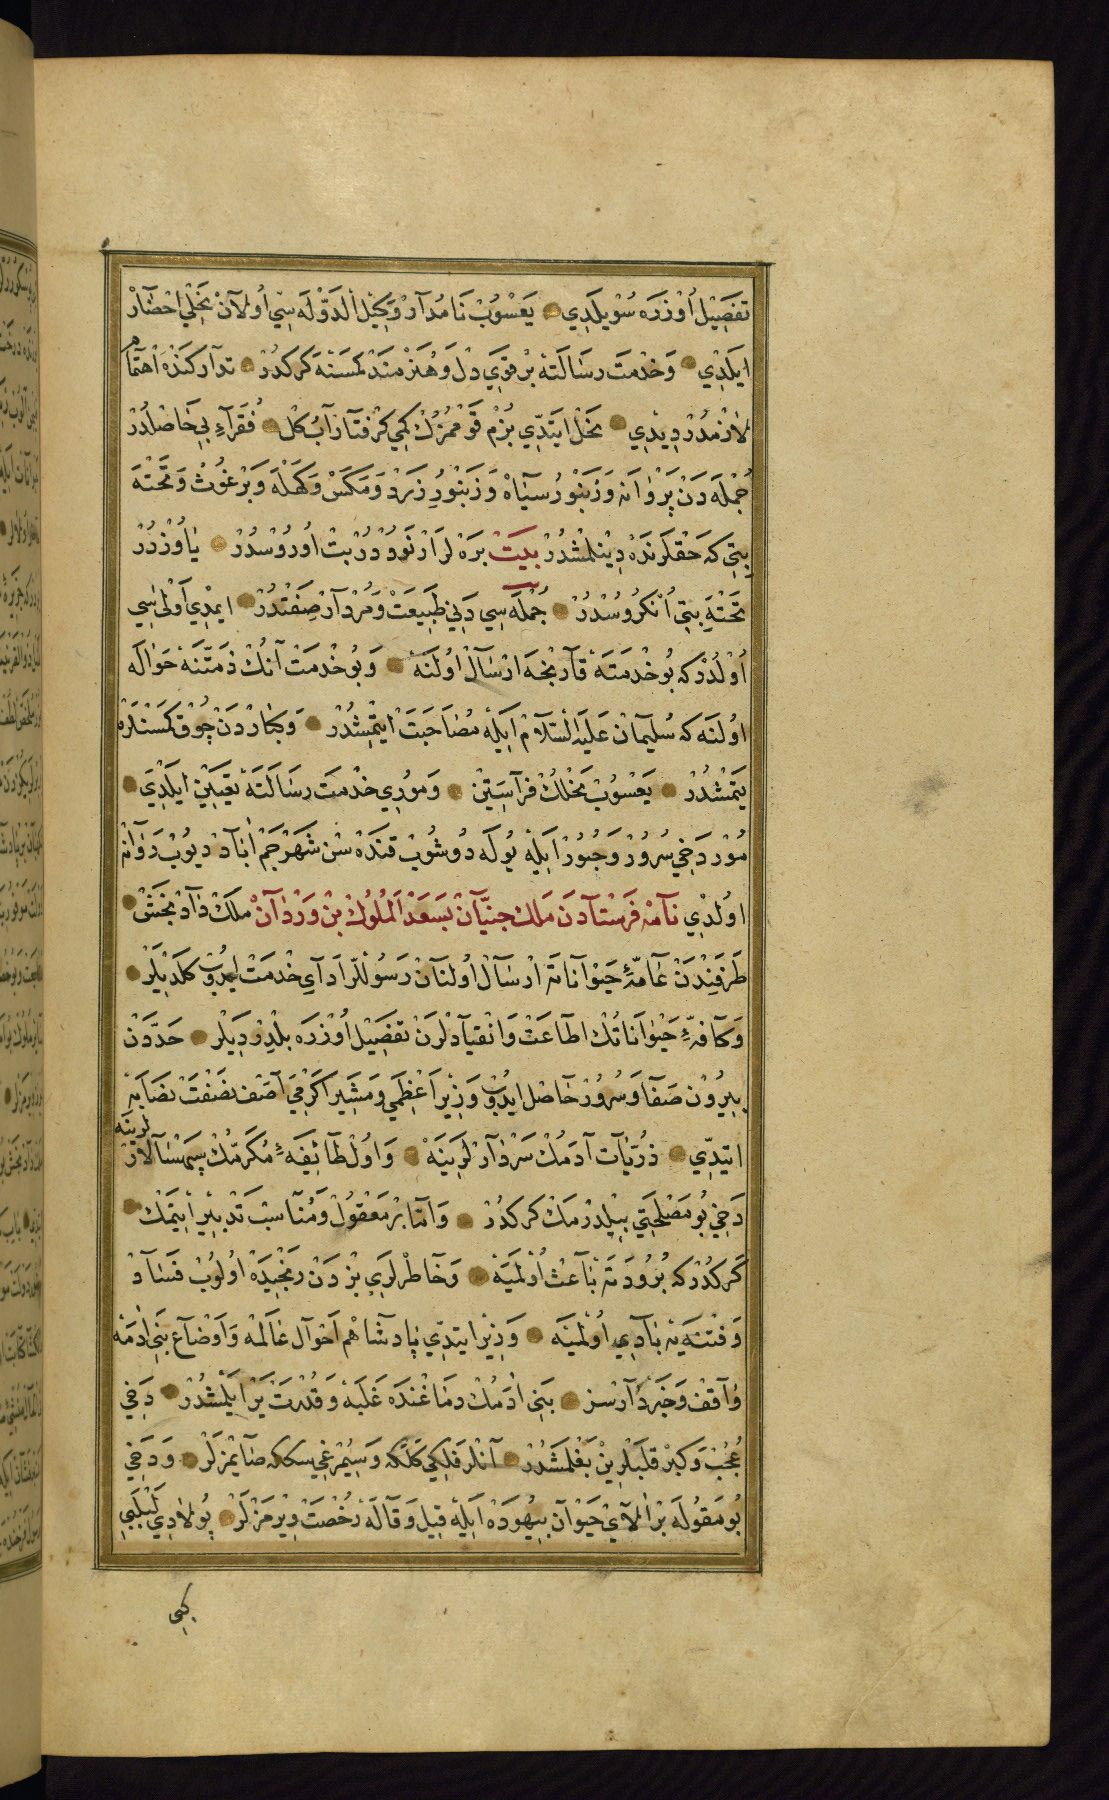 تفصيل اوزره سويلدي يعسوب نامدار وكيل الدوله سي اولان نحلي احضار
ايلدي و خدمت رسالته بر قوي دل و هنرمند كمسنه كركدر تداركنده اهتمام
لازمدر ديدي نحل ايتدي بزم قوممزك كمي گرفتار آب گل فقراء بي حاصلدر
جمله دن پروانه و زنبور سياه و زنبور زرد و مكس و كهله و برغوث و تحته
بيتي كه حقلرنده دينلمشدر بيت بره لر ارنوددر بت اوروسدر ياوزدر
تحته بيتي انكروسدر جمله سي دني طبيعت و مردار صفتدر ايمدي اولى سي
اولدر كه بو خدمته قارنجه ارسال اولنه و بو خدمت آنك ذمتنه حواله
اولنه كه سليمان عليه السلام ايله مصاحبت ايتمشدر و كباردن چوق كمسنلره
يتمشدر يعسوب نحلك فراستين و موري خدمت رسالته تعيين ايلدي
مور دخي سرور و حبور ايله يوله دوشوب قنده سن شهر جم اباد ديوب روانه
اولدي نامه فرستادن ملك جنيان بسعد الملوك بن وردان ملك داد بخش
طرفندن عامهٔ حيواناته ارسال اولنان رسوللر اداي خدمت ايدوب كلديلر
و كافهٔ حيواناتك اطاعت و انقيادلرن تفصيل اوزره بلدرديلر حددن
بيرون صفا و سرور حاصل ايدوب وزير اعظمي و مشير اكرمي آصف نصفت نصابه
ايتدي ذريات آدمك سردارلرينه و اول طائفهٔ مكرمك سپهسالارلرينه
دخي بو مصلحتي بيلدرمك كركدر و اما بر معقول و مناسب تدبير ايتمك
كركدر كه برودته باعث اولميه و خاطرلري بزدن رنجيده اولوب فساد
و فتنه يه بادي اولميه وزير ايتدي پادشاهم احوال عالمه و اوضاع بني ادمه
واقف و خبردارسز بني ادمك دماغنده غلبه و قدرت ير ايلمشدر دخي
عجب و كبر قلبلرين بغلمشدر آنلر فلكي كلكه و سيمرغي سككه صايمزلر و دخي
بو مقوله بر الاي حيوان بيهوده ايله قيل و قاله رخصت ويرمزلر پولادي لبلبي
كبي